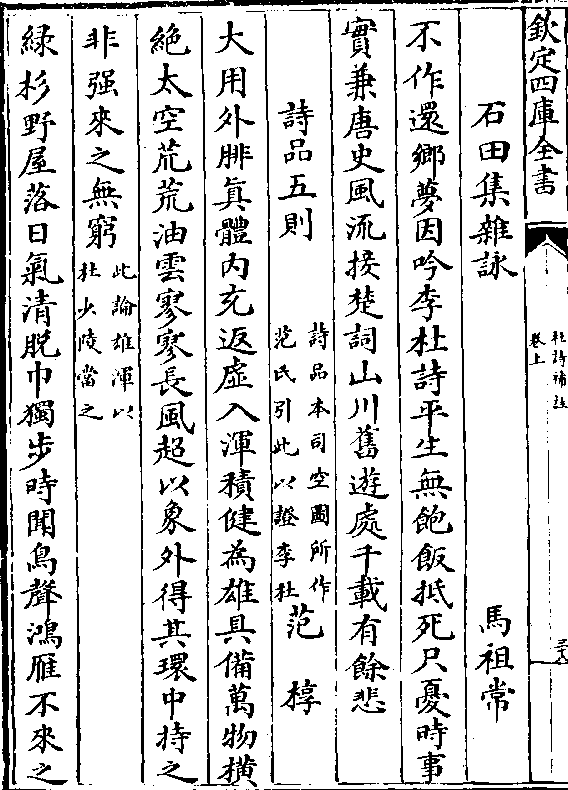 欽定四庫全書
杜詩補註
卷上
石田集雜詠 馬祖常
不作還鄉夢因吟李杜詩平生無飽飯抵死只憂時事
實兼唐史風流接楚詞山川舊遊處千載有餘悲
詩品五則 詩品本司空圖所作
范氏引此以證李杜 范梈
大用外腓真體内充返虛入渾積健為雄具備萬物橫
絶太空荒荒油雲寥寥長風超以象外得其環中持之
非强來之無窮 此論雄渾以
杜少陵當之
緑杉野屋落日氣清脫巾獨步時聞鳥聲鴻雁不來之